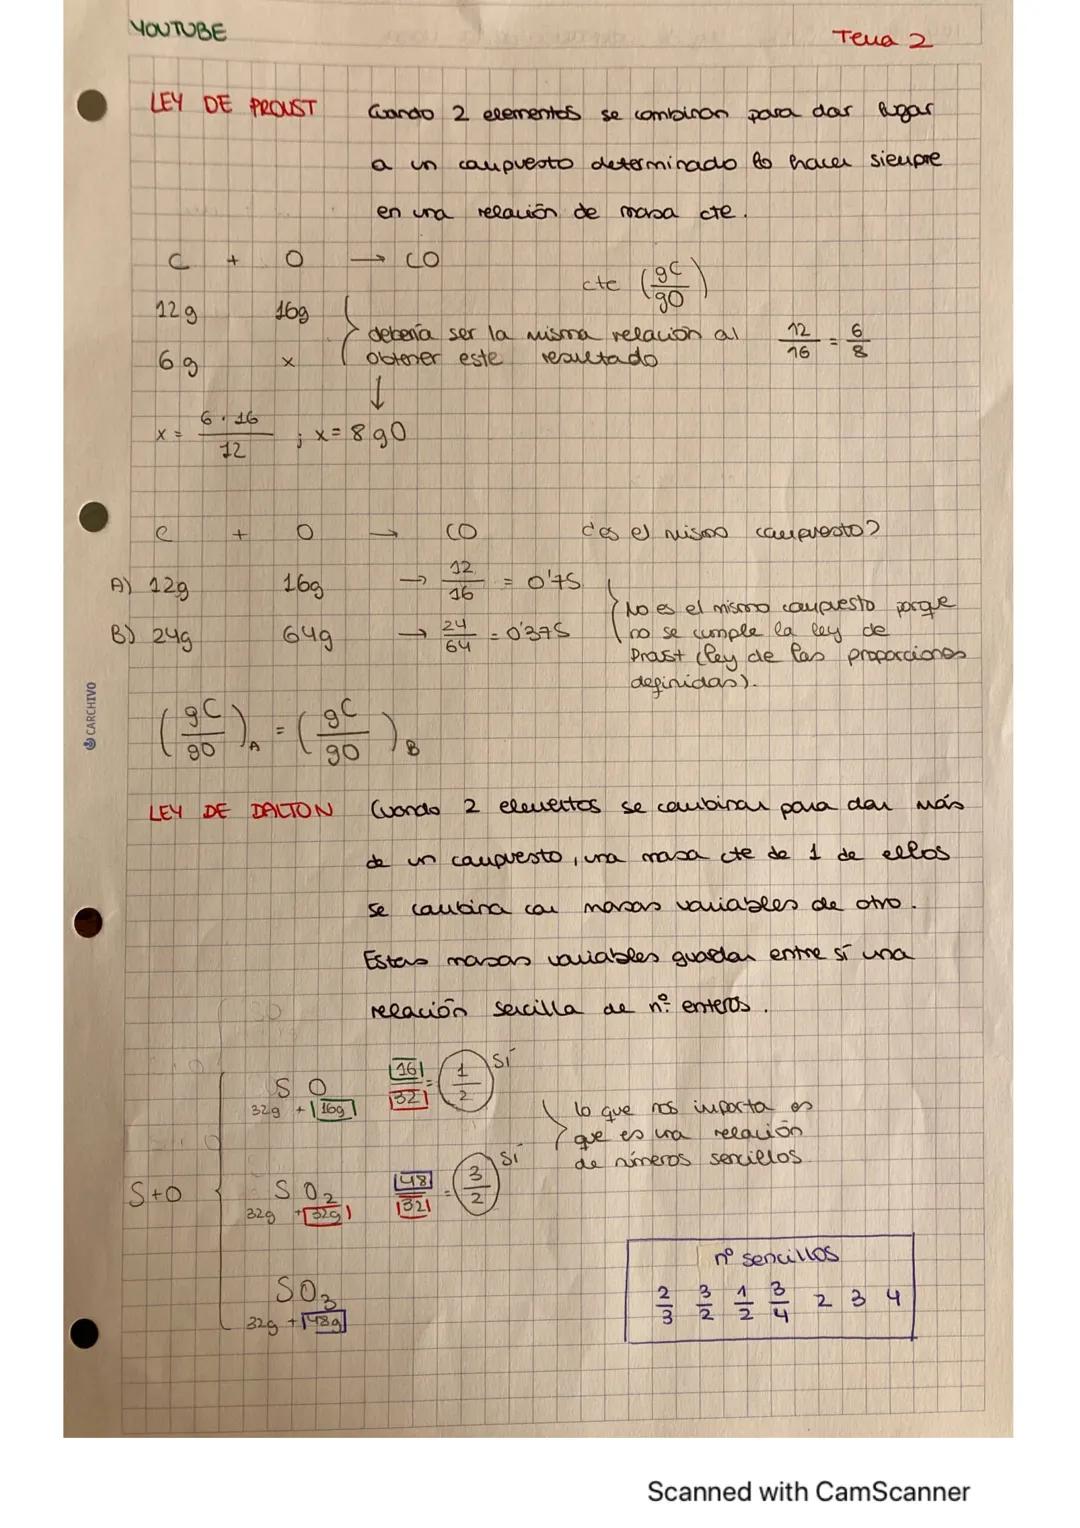 YOUTUBE
Tema 2
LEY DE PROUST Cuando 2 elementos se combinan para dar lugar
a un compuesto determinado lo hacen siempre
en una relación de masa cte.
C + O → CO
cte (gC/gO)
12g 16g
debería ser la misma relación al 12/16 = 6/8
6g x obtener este resultado
↓
x = 6·16/12 ; x = 8gO
C + O → CO ¿es el mismo compuesto?
A) 12g 16g → 12/16 = 0'75
No es el mismo compuesto porque
B) 24g 64g → 24/64 = 0'375 no se cumple la ley de
Proust (ley de las proporciones
definidas).
(gC/gO)A = (gC/gO)B
CARCHIVO
LEY DE DALTON Cuando 2 elementos se combinan para dar más
de un compuesto, una masa cte de 1 de ellos
se combina con masas variables de otro.
Estas masas variables guardan entre sí una
relación sencilla de nº enteros.
S O 16/32 = 1/2 SÍ
32g + 16g
lo que nos importa es
que es una relación
de números sencillos
S+O S O2 48/32 = 3/2 SÍ
32g + 32g
nº sencillos
2/3 3/2 1/2 3/4 2 3 4
SO3
32g + 48g
Scanned with CamScanner